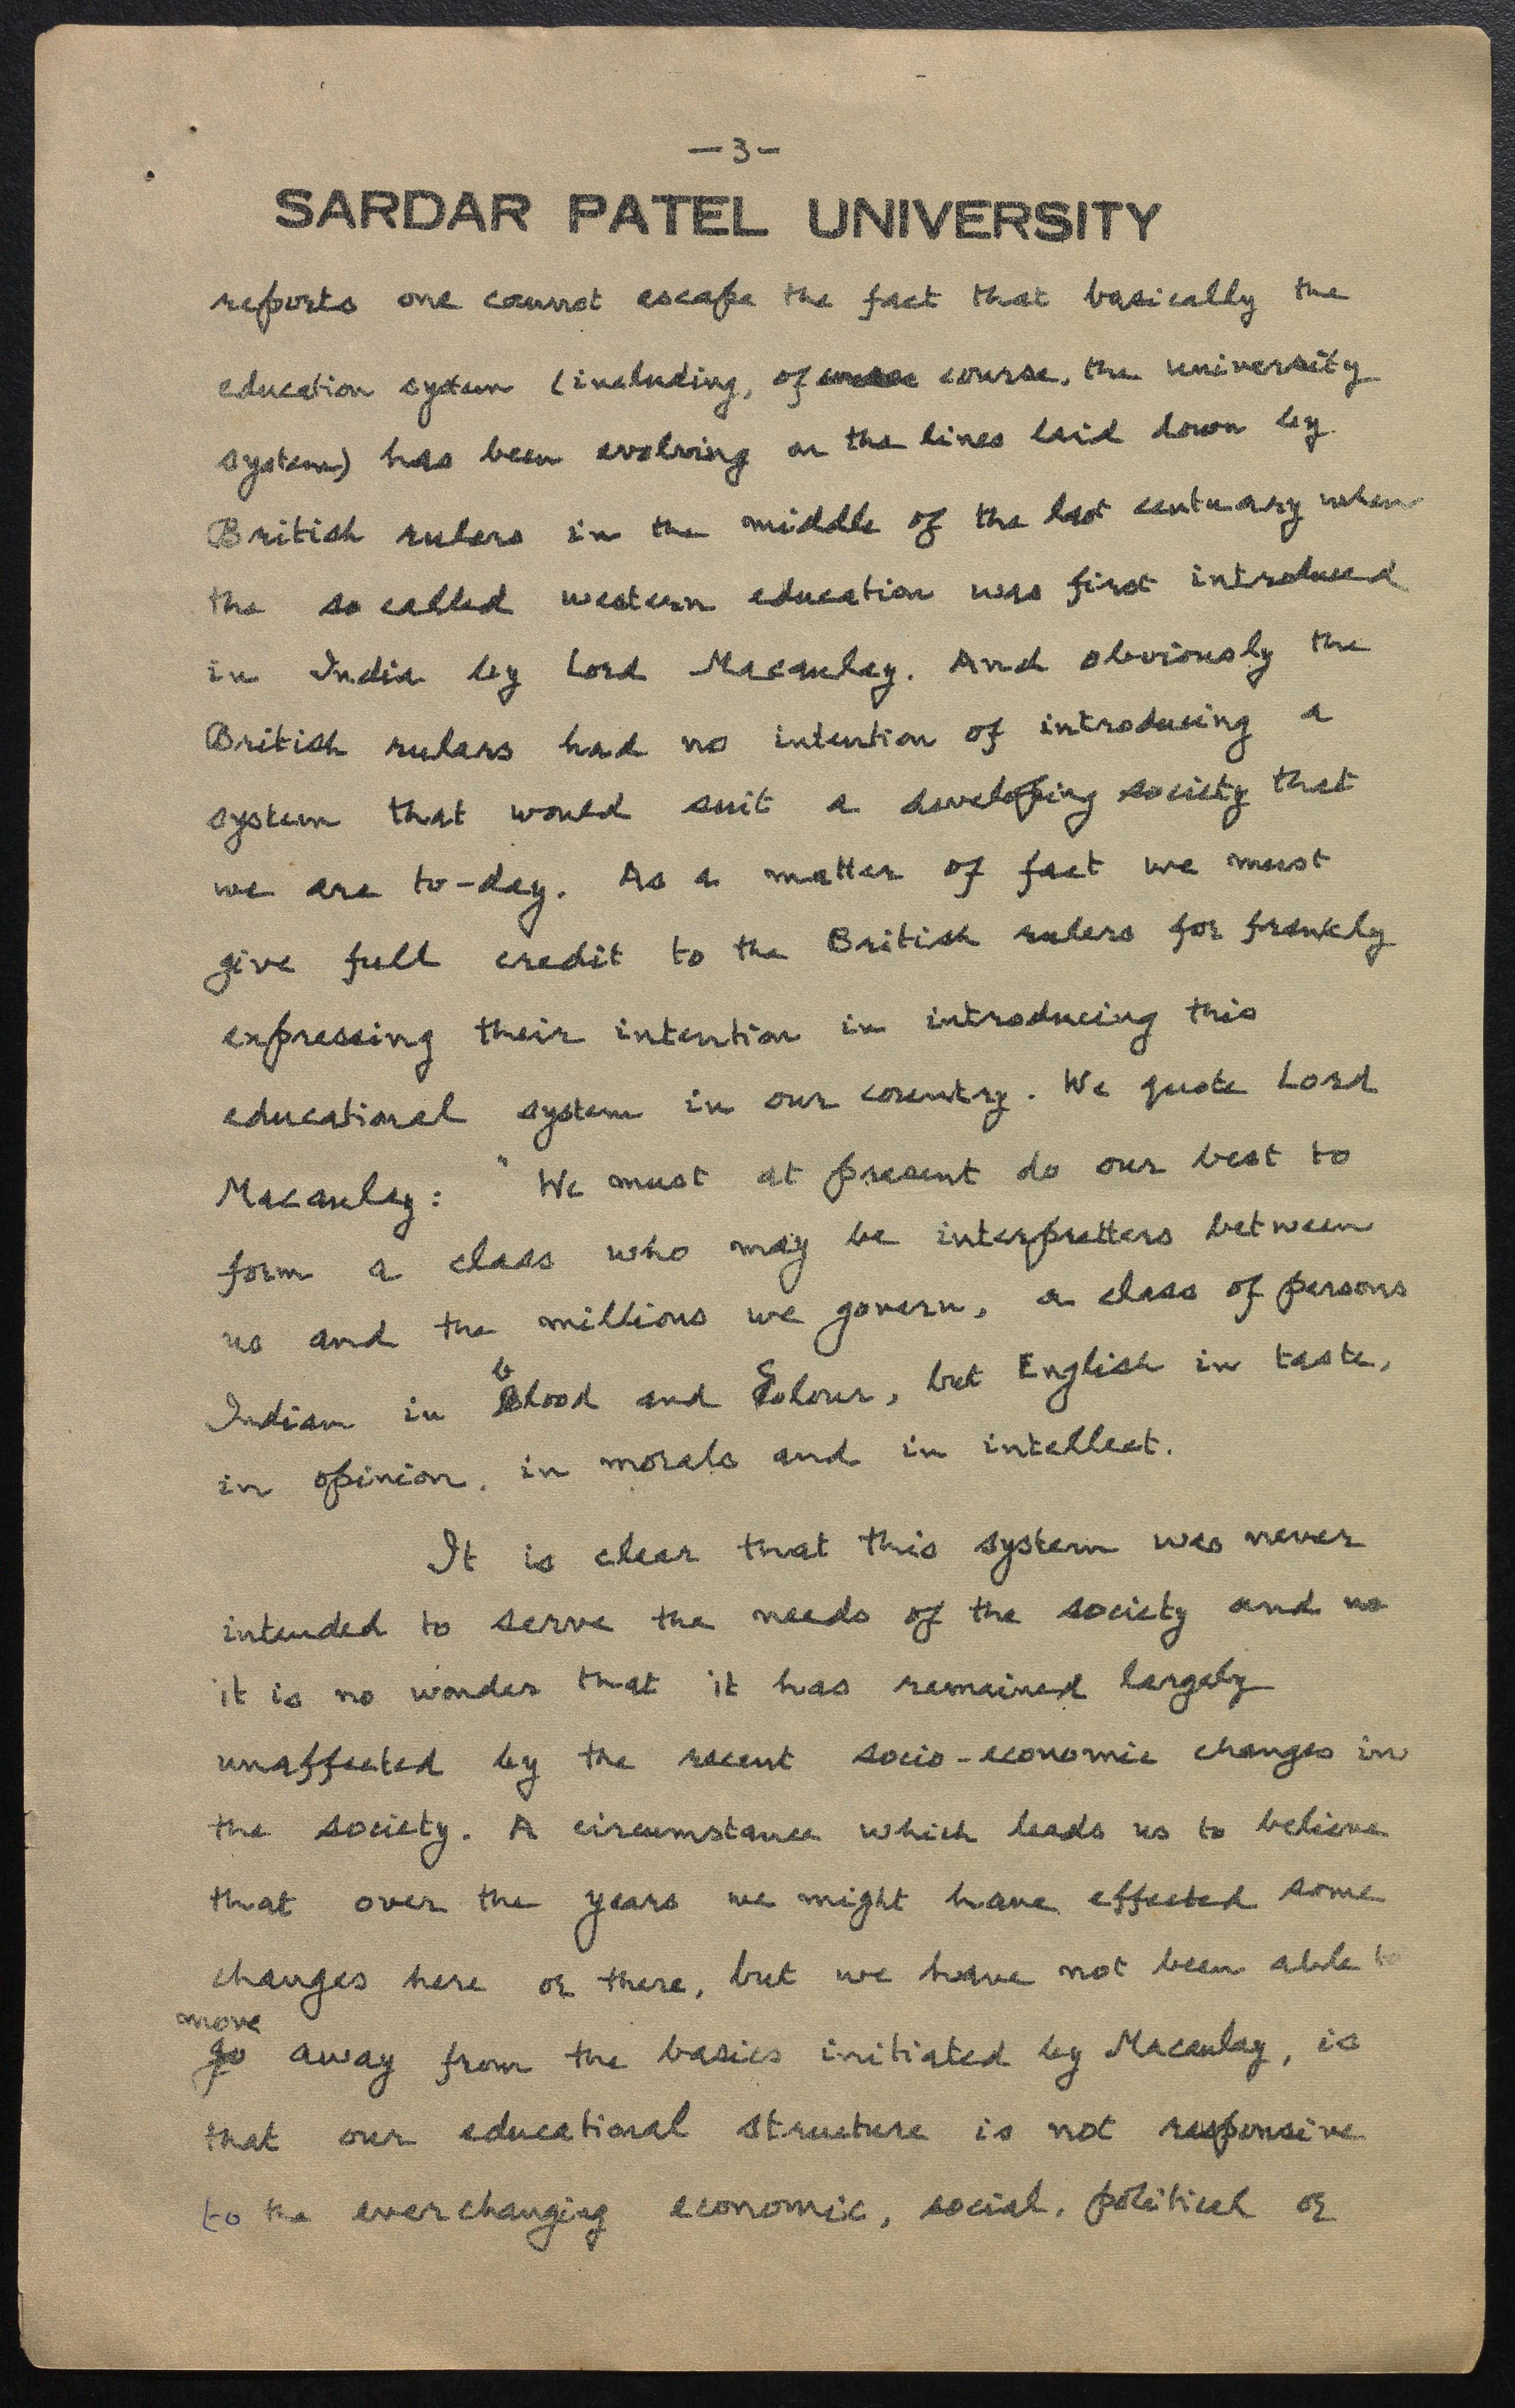 -3-
SARDAR PATEL UNIVERSITY
reports one cannot escape the fact that basically the
education system (including, of course, the university
system) has been evolving on the lines laid down by
British rulers in the middle of the last centuary when
the so called western education was first introduced
in India by Lord Macaulay. And obviously the
British rulers had no intention of introducing a
system that would suit a developing society that
we are to-day. As a matter of fact we must
give full credit to the British rulers for frankly
expressing their intention in introducing this
educational system in our country. We quote Lord
Macaulay: " We must at present do our best to
form a class who may be interpretters between
us and the millions we govern, a class of persons
Indian in blood and Colour, but English in taste,
in opinion, in morals and in intellect.
It is clear that this system was never
intended to serve the needs of the society and no
it is no wonder that it has remained largely
unaffected by the recent socio-economic changes in
the society. A circumstance which leads us to believe
that over the years we might have effected some
changes here or there, but we have not been able to
move
go away from the basics initiated by Macaulay, is
that our educational structure is not responsive
to the everchanging economic, social, political or